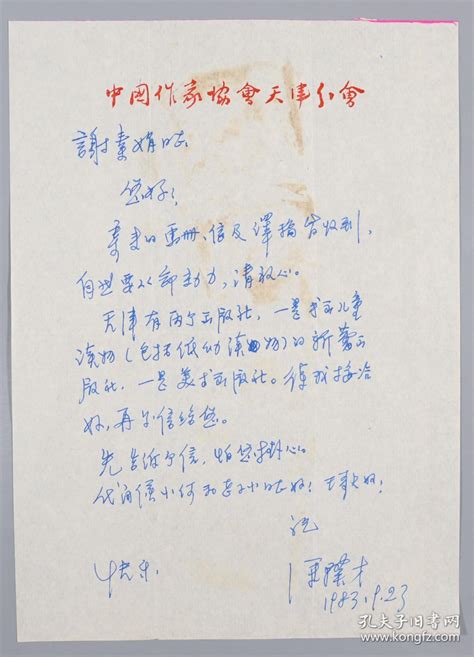 中国作家协會天津分會
謝素娟同志:
您好!
寄来的画册、信及譯稿皆收到,
自当要以部努力,请放心。
天津有两个出版社,一是出儿童
读物(包括低幼读物)的新蕾出
版社,一是美术出版社。待我接洽
好,再写信给您。
先告诉个信,怕您挂心。
代问候小何和
祝
快乐
冯骥才
1983.9.23
孔夫子旧书网
www.kongfz.com